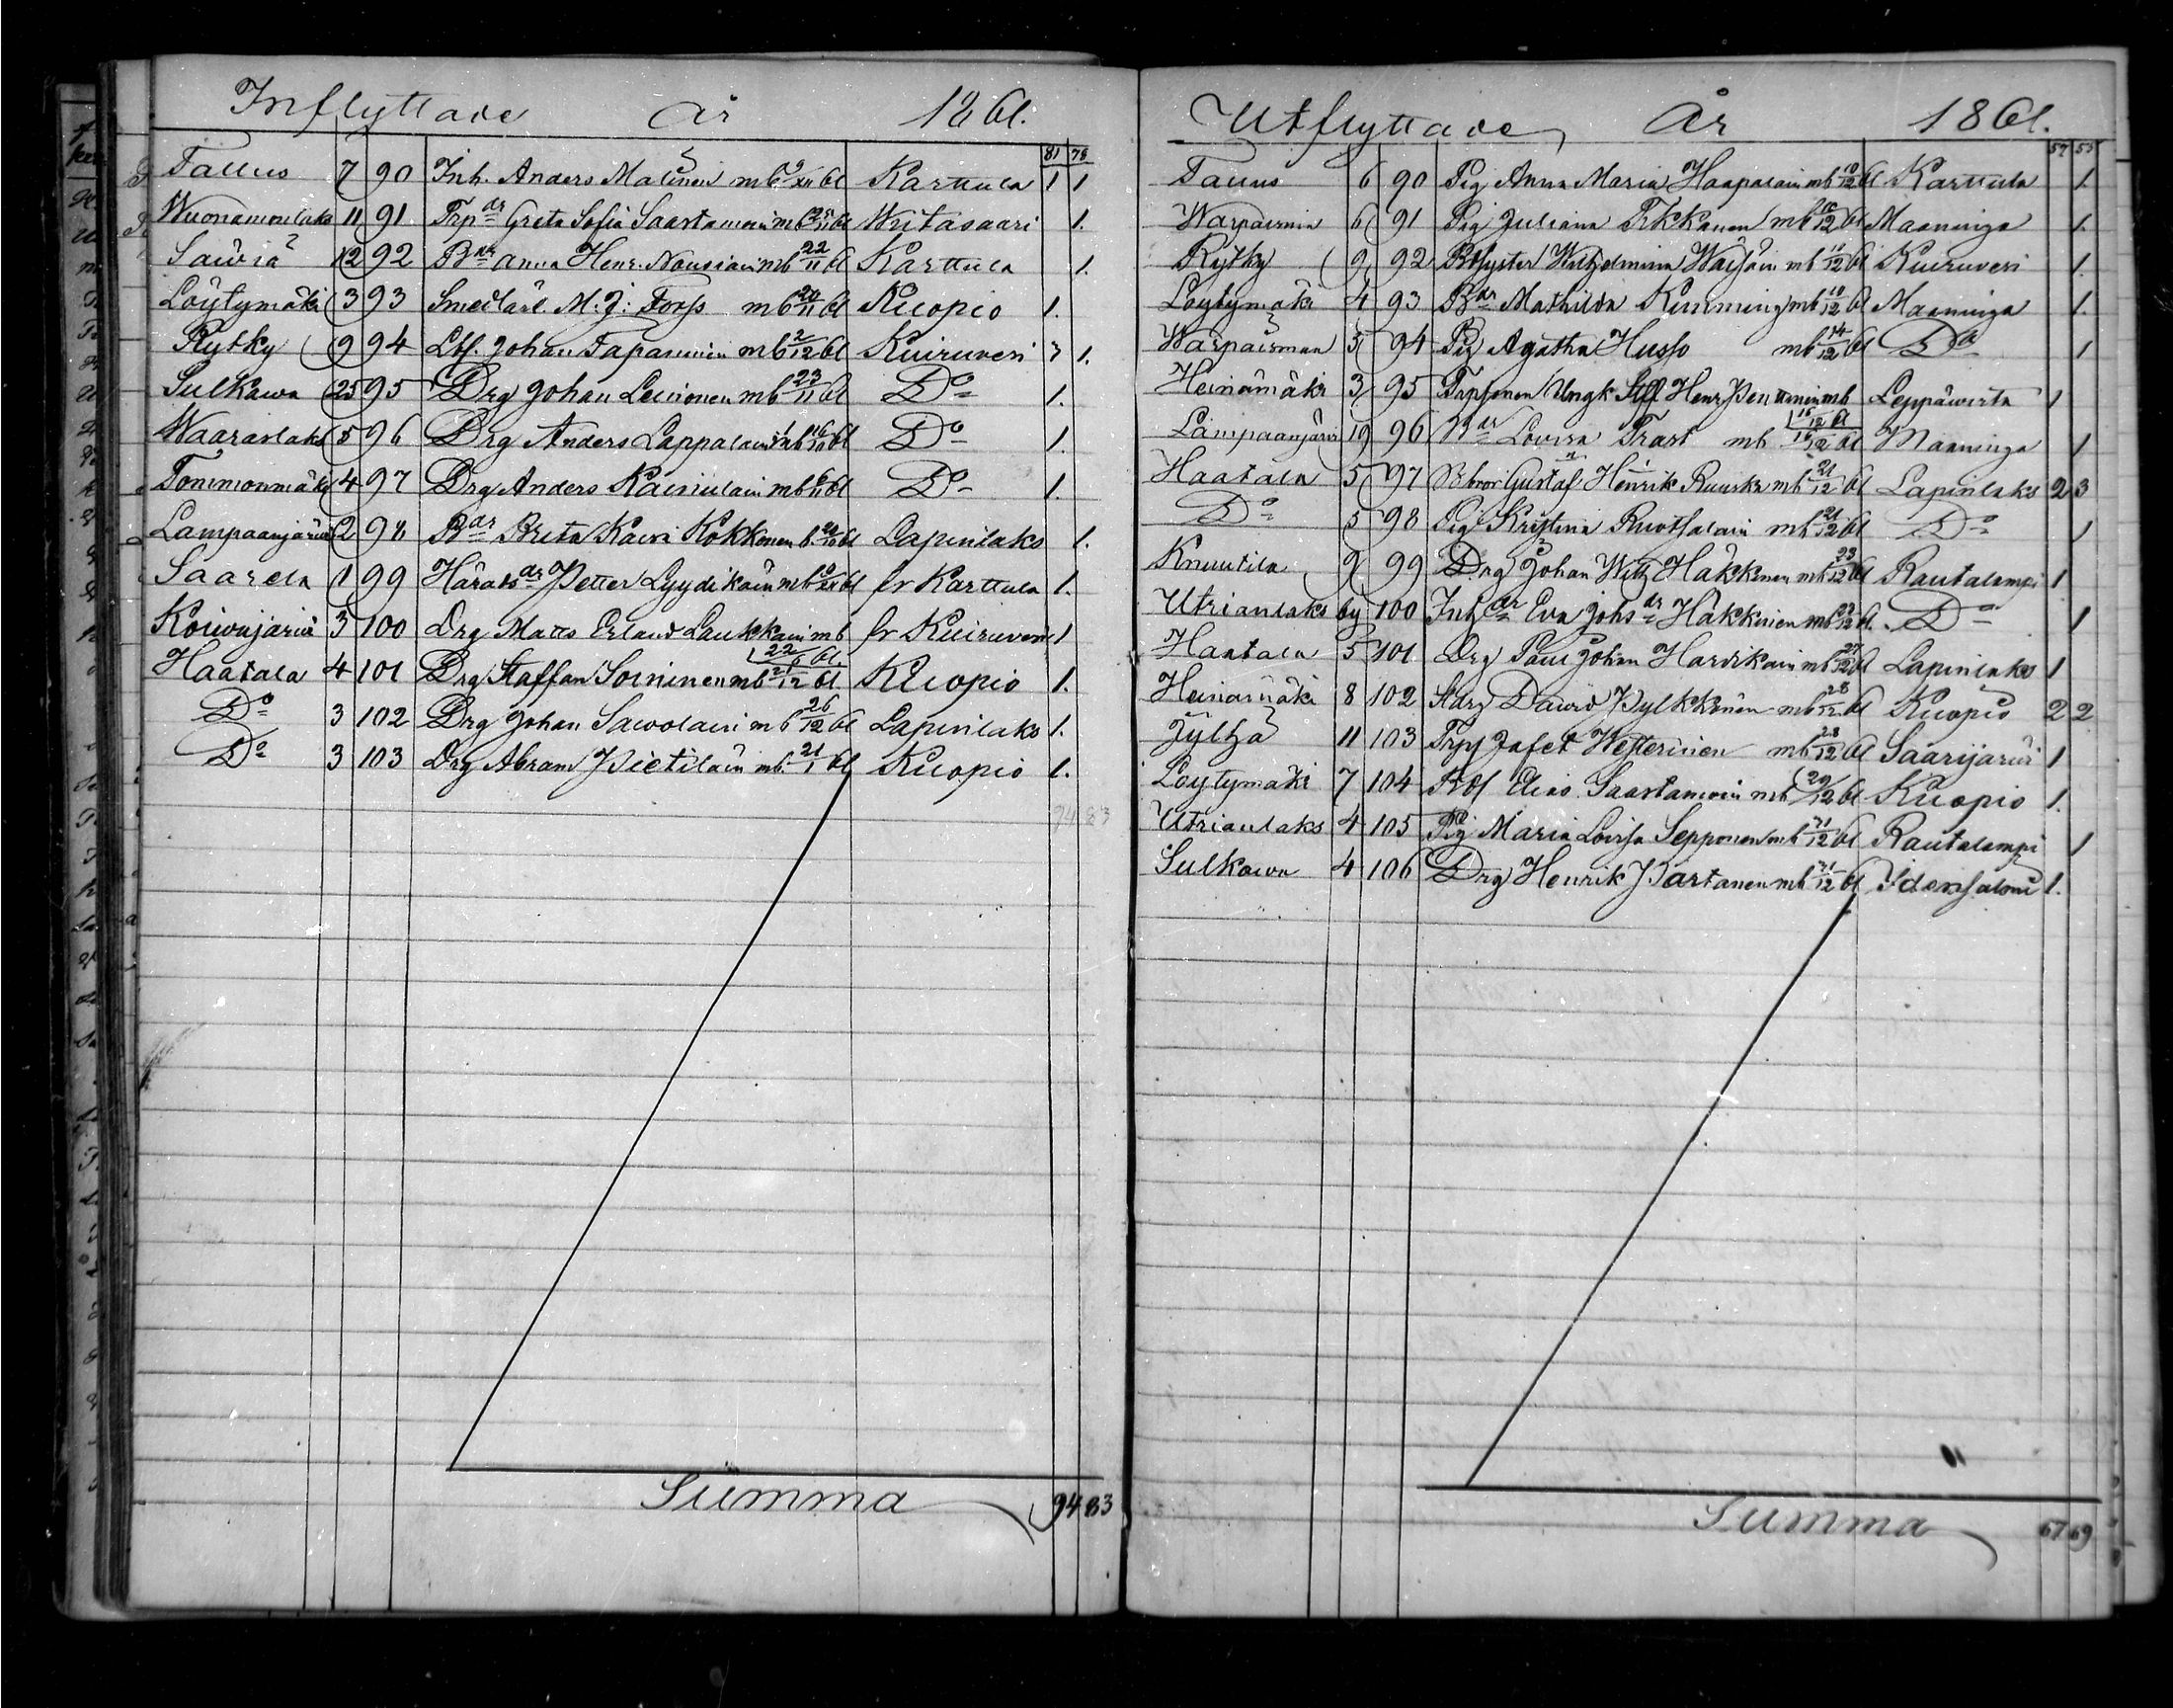 Inflyttade År 1861.
81 78
Tallus 7 90 Inh. Anders Malinen mb 9/XII 61 Karttula 1 1
Wuonamonlaks 11 91 Trp dr Greta Sofia Saastamoin mb 61 Witasaari 1.
Sawia 12 92 B dr Anna Henr. Nousiain mb 22/11 61 Karttula 1.
Löytymäki 3 93 Smedlärl. M. J. Forss mb 20/11 61 Kuopio 1.
Rytky 9 94 Lbf. Johan Tapaninin mb 2/12 61 Kiuruvesi 3 1.
Sulkawa 25 95 Drg Johan Leinonen mb 23/11 61 Do 1.
Waaraslaks 5 96 Drg Anders Lappalain mb 16/10 61 Do 1.
Tommonmäki 4 97 Drg Anders Kainulain mb 6/11 61 Do 1.
Lampaanjärwi 2 98 B dr Brita Kaisa Kokkonen b. 20/10 61 Lapinlaks 1.
Saarela 1 99 Härads dr Petter Lyydikäin mb 9/XII 61 fr Karttula 1.
Koiwujärwi 3 100 Drg Matts Erland Laukkain mb fr Kiuruvesi 1
22/6 61.
Haatala 4 101 Drg Staffan Soininen mb 2/12 61 Kuopio 1.
Do 3 102 Drg Johan Sawolain mb 26/12 61 Lapinlaks 1.
Do 3 103 Drg Abram Pietiläin mb. 21/1 61 Kuopio 1.
94 83
Summa 94 83
Utflyttade År 1861.
57 53
Tallus 6 90 Pig Anna Maria Haapalain mb 10/12 61 Karttula 1.
Warpaismä 6 91 Pig Juliana Tikkanen mb 10/12 61 Maaninga 1.
Rytky 9 92 Bsyster Wilhelmina Waisäin mb 10/12 61 Kiuruvesi 1.
Löytymäki 4 93 B dr Mathilda Rimming mb 10/12 61 Maaninga 1.
Warpaisman 5 94 Pig Agatha Husso mb 14/12 61 Do 1
Heinämäki 3 95 Trpsonen Ungk Stff Henr Penttinin mb Leppäwirta 1
16/12 61
Lampaanjärwi 19 96 B dr Lovisa Trast mb 16/12 61 Maaninga 1
Haatala 5 97 Bbror Gustaf Henrik Ruuska mb 21/12 61 Lapinlaks 2 3
Do 5 98 Pig Kristina Ruotsalain mb 21/12 61 Do 1
Knuutila 9 99 Drg Johan Wilh Häkkinen mb 23/12 61 Rautalampi 1
Utrianlaks by 100 Inh dr Eva Johs dr Häkkinen mb 23/12 61. Do 1
Haatala 5 101 Drg Paul Johan Hardikain mb 27/12 61 Lapinlaks 1
Heinämäki 8 102 Sdrg Dawid Pylkkänen mb 28/12 61 Kuopio 2 2
Jylhä 11 103 Trpf Jafet Westerinen mb 28/12 61 Saarijärwi 1
Löytymäki 7 104 Elias Saastamoin mb 29/12 61 Kuopio 1.
Utrianlaks 4 105 Pig Maria Lovisa Sepponen mb 31/12 61 Rautalampi 1
Sulkawa 4 106 Drg Henrik Partanen mb 31/12 61 Idensalmi 1.
Summa 67 69